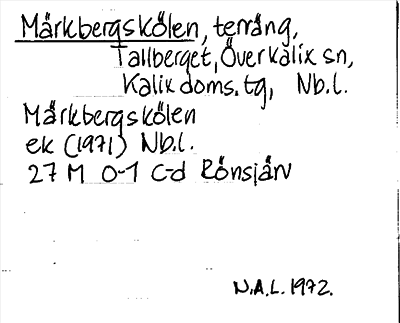 Märkbergskölen, terräng,
Tallberget, Överkalix sn,
Kalix doms.tg, Nb.l.
Märkbergskölen
ek (1971) Nb.l.
27 M 0-1 c-d Rönsjärv
N.A.L. 1972.